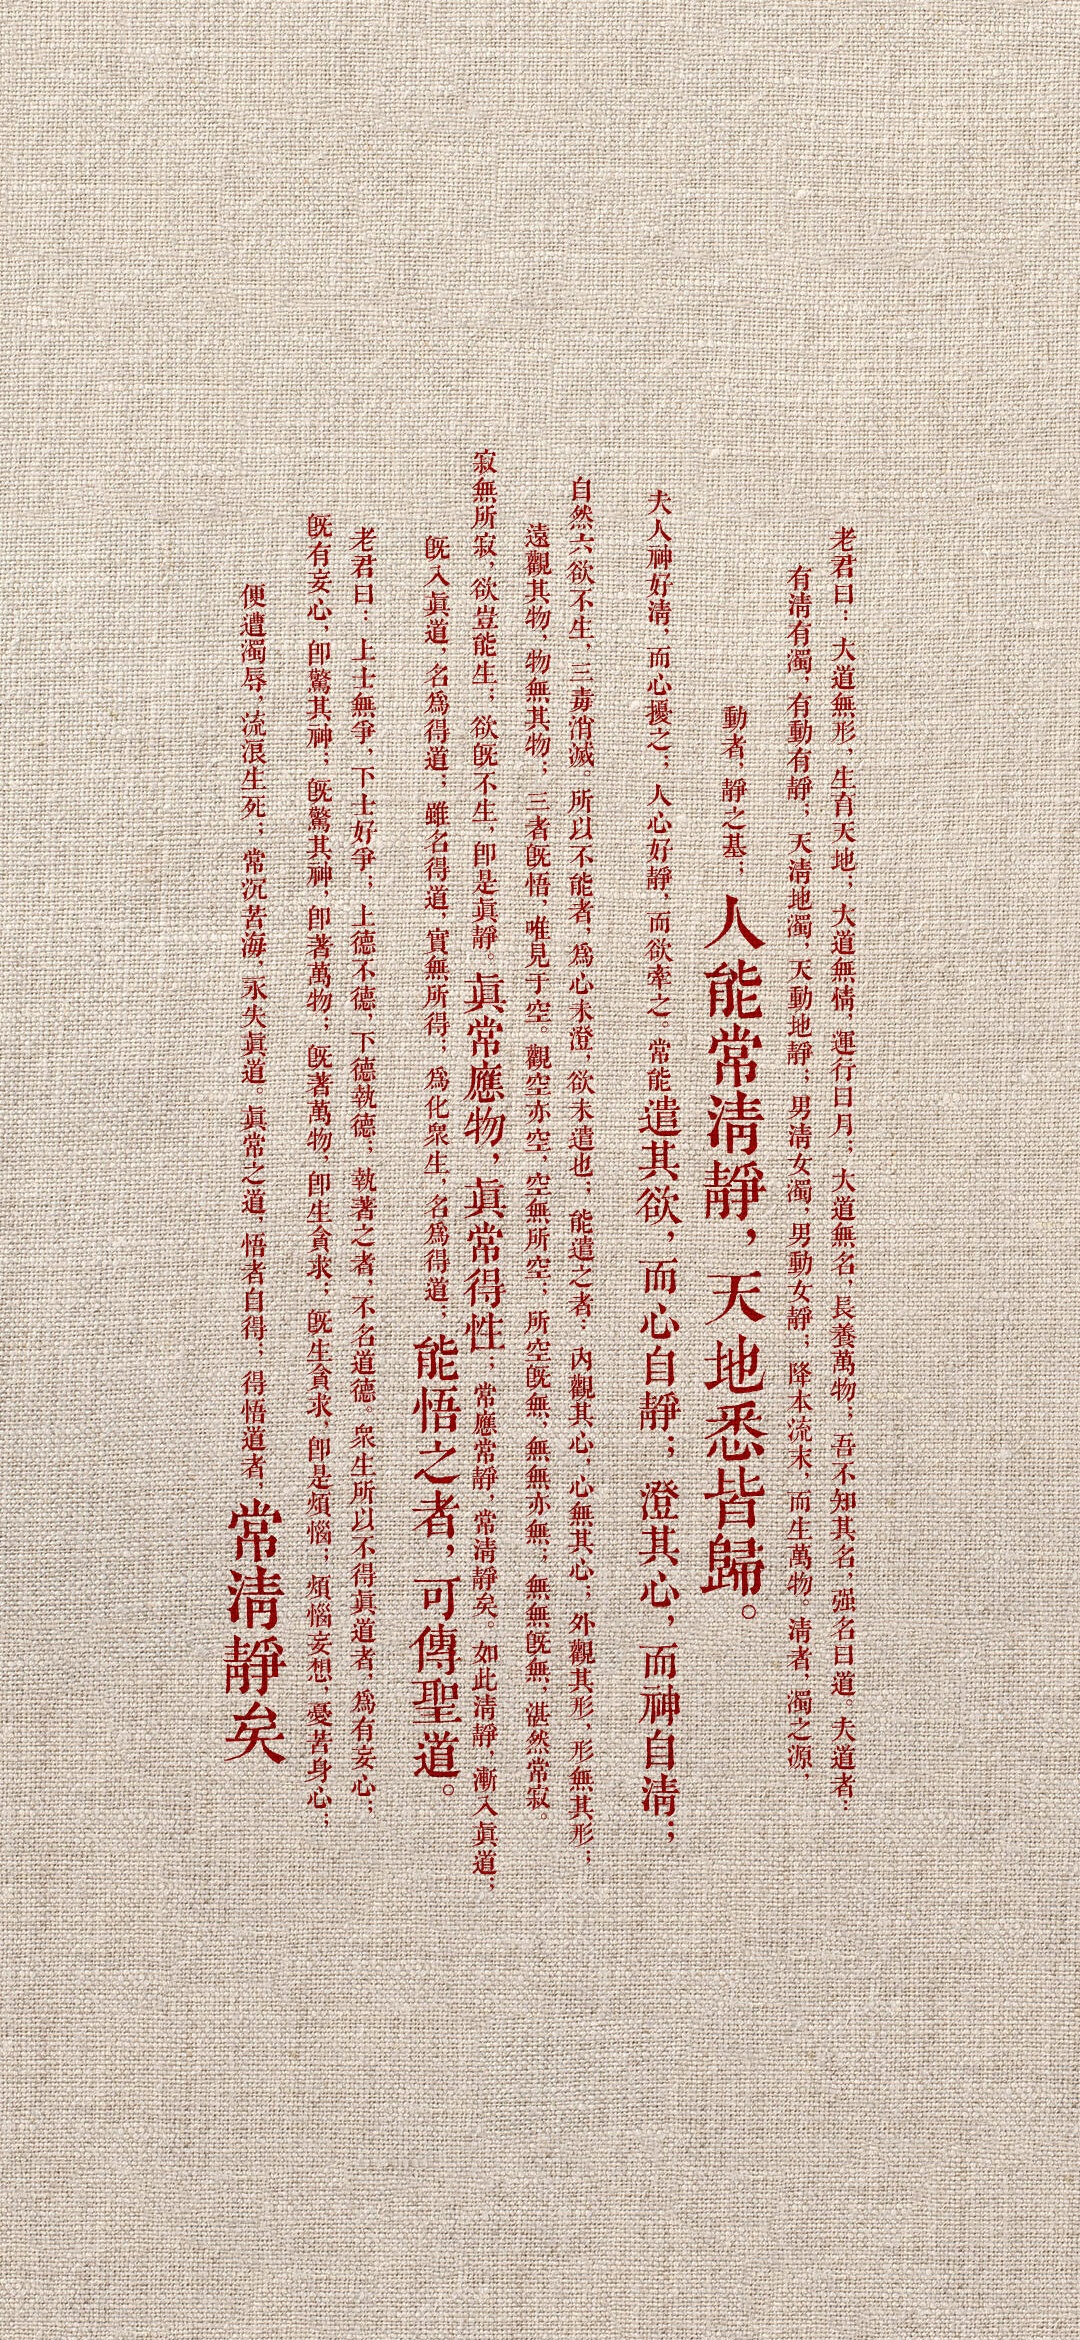 老君曰：大道無形，生育天地；大道無情，運行日月；大道無名，長養萬物；吾不知其名，強名曰道。夫道者：
有清有濁，有動有靜；天清地濁，天動地靜；男清女濁，男動女靜；降本流末，而生萬物。清者，濁之源，
動者，靜之基；人能常清靜，天地悉皆歸。
夫人神好清，而心擾之；人心好靜，而欲牽之。常能遣其欲，而心自靜；澄其心，而神自清；
自然六欲不生，三毒消滅。所以不能者，爲心未澄，欲未遣也；能遣之者：內觀其心，心無其心；外觀其形，形無其形；
遠觀其物，物無其物；三者旣悟，唯見于空。觀空亦空，空無所空；所空旣無，無無亦無；無無旣無，湛然常寂。
寂無所寂，欲豈能生；欲旣不生，卽是眞靜。眞常應物，眞常得性；常應常靜，常清靜矣。如此清靜，漸入眞道；
旣入眞道，名爲得道；雖名得道，實無所得；爲化衆生，名爲得道；能悟之者，可傳聖道。
老君曰：上士無爭，下士好爭；上德不德，下德執德；執著之者，不名道德。衆生所以不得眞道者，爲有妄心；
旣有妄心，卽驚其神；旣驚其神，卽著萬物；旣著萬物，卽生貪求；旣生貪求，卽是煩惱；煩惱妄想，憂苦身心；
便遭濁辱，流浪生死；常沉苦海，永失眞道。眞常之道，悟者自得；得悟道者，常清靜矣